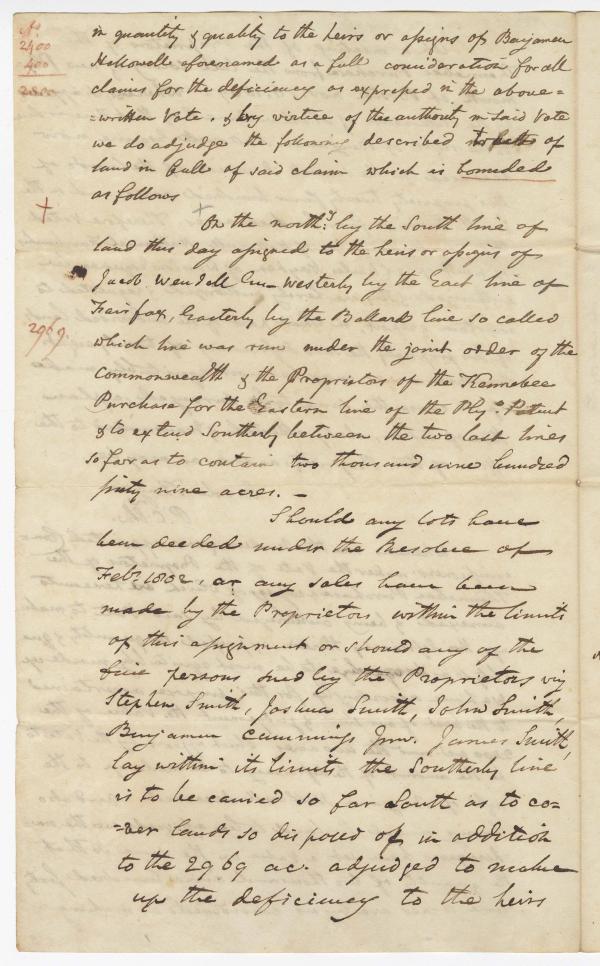 A.
2400
400
2800
in quantity & quality to the heirs or assigns of Benjamin
Hallowell aforenamed as a full consideration for all
claims for the deficiency as expressed in the above=
=written Vote. & by virtue of the authority in said Vote
we do adjudge the following described of
land in full of said claim which is bounded
as follows
+ + On the north.y by the South line of
land this day assigned to the heirs or assigns of
Jacob Wendell Westerly by the East line of
Fairfax, Easterly by the Ballard line so called
2969.
which line was run under the joint order of the
Commonwealth & the Proprietors of the Kennebec
Purchase for the Eastern line of the Ply.o Patent
& to extend Southerly between the two last lines
so far as to contain two thousand nine hundred
sixty nine acres. –
Should any lots have
been deeded under the Resolve of
Feb.y 1802, or any sales have been
made by the Proprietors within the limits
of this assignment or should any of the
five persons sued by the Proprietors viz
Stephen Smith, Joshua Smith, John Smith,
Benjamin Cummings Junr. James Smith,
lay within its limits the Southerly line
is to be carried so far South as to co=
=ver lands so disposed of in addition
to the 2969 ac. adjudged to make
up the deficiency to the heirs